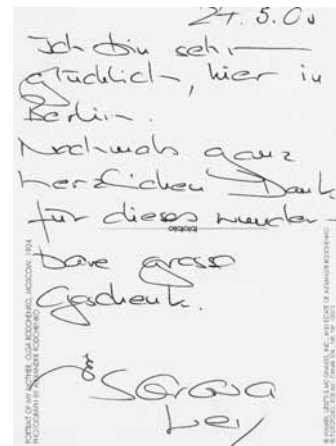 24.5.00
Ich bin sehr
glücklich, hier in
Berlin.
Nochmals ganz
herzlichen Dank
für dieses wunder-
bare grosse
Geschenk.
fotofolio
PORTRAIT OF MY MOTHER, OLGA RODCHENKO, MOSCOW, 1924
PHOTOGRAPH BY ALEXANDER RODCHENKO